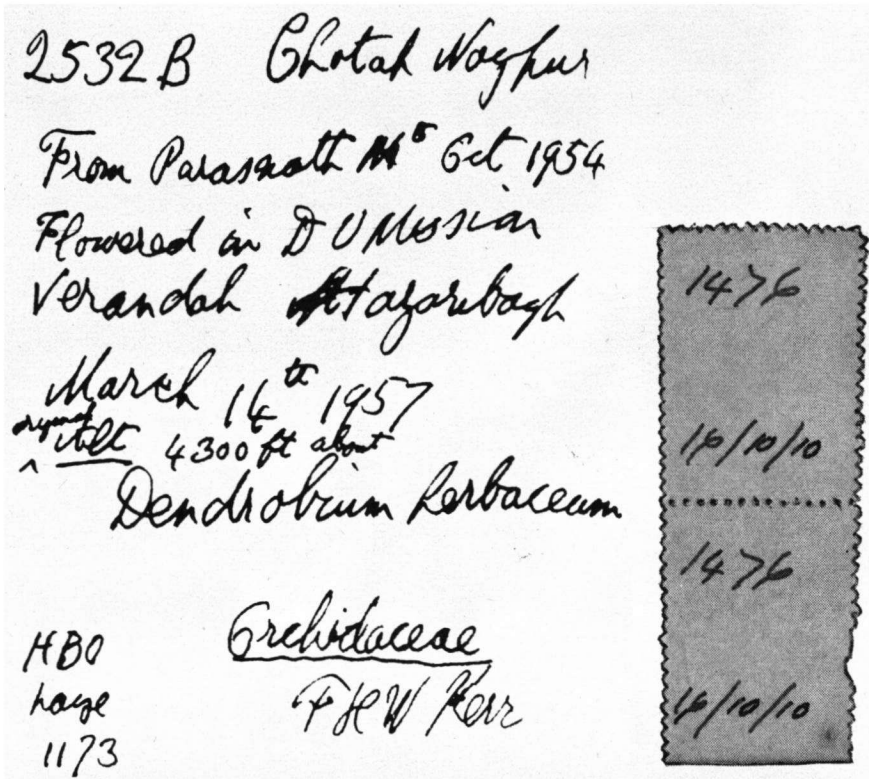 2532 B Chotah Nagpur
From Parasnath Mt Oct 1954
Flowered in D U Mission
Verandah Hazaribagh
March 14th 1957
original Alt 4300 ft about
Dendrobium herbaceum
Orchidaceae
F H W Kerr
HBO
1173
1476
16/10/10
1476
16/10/10